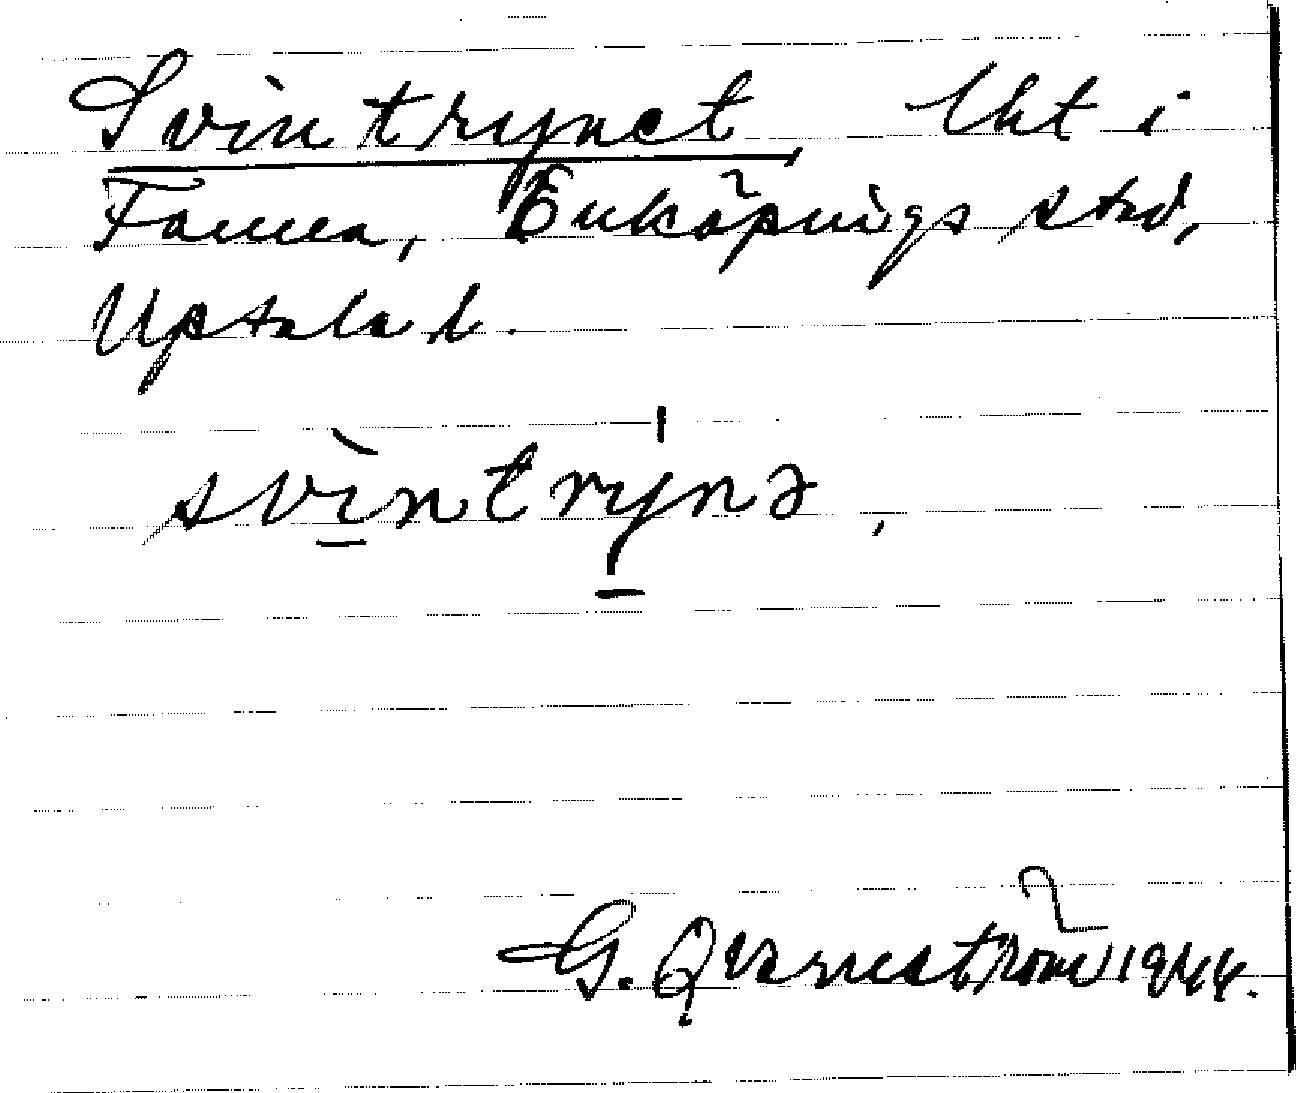 Svintrynet, lht i
Fanna, Enköpings stad,
Upsala l.
svìntrýnə,
G. Qvarnström 1944.